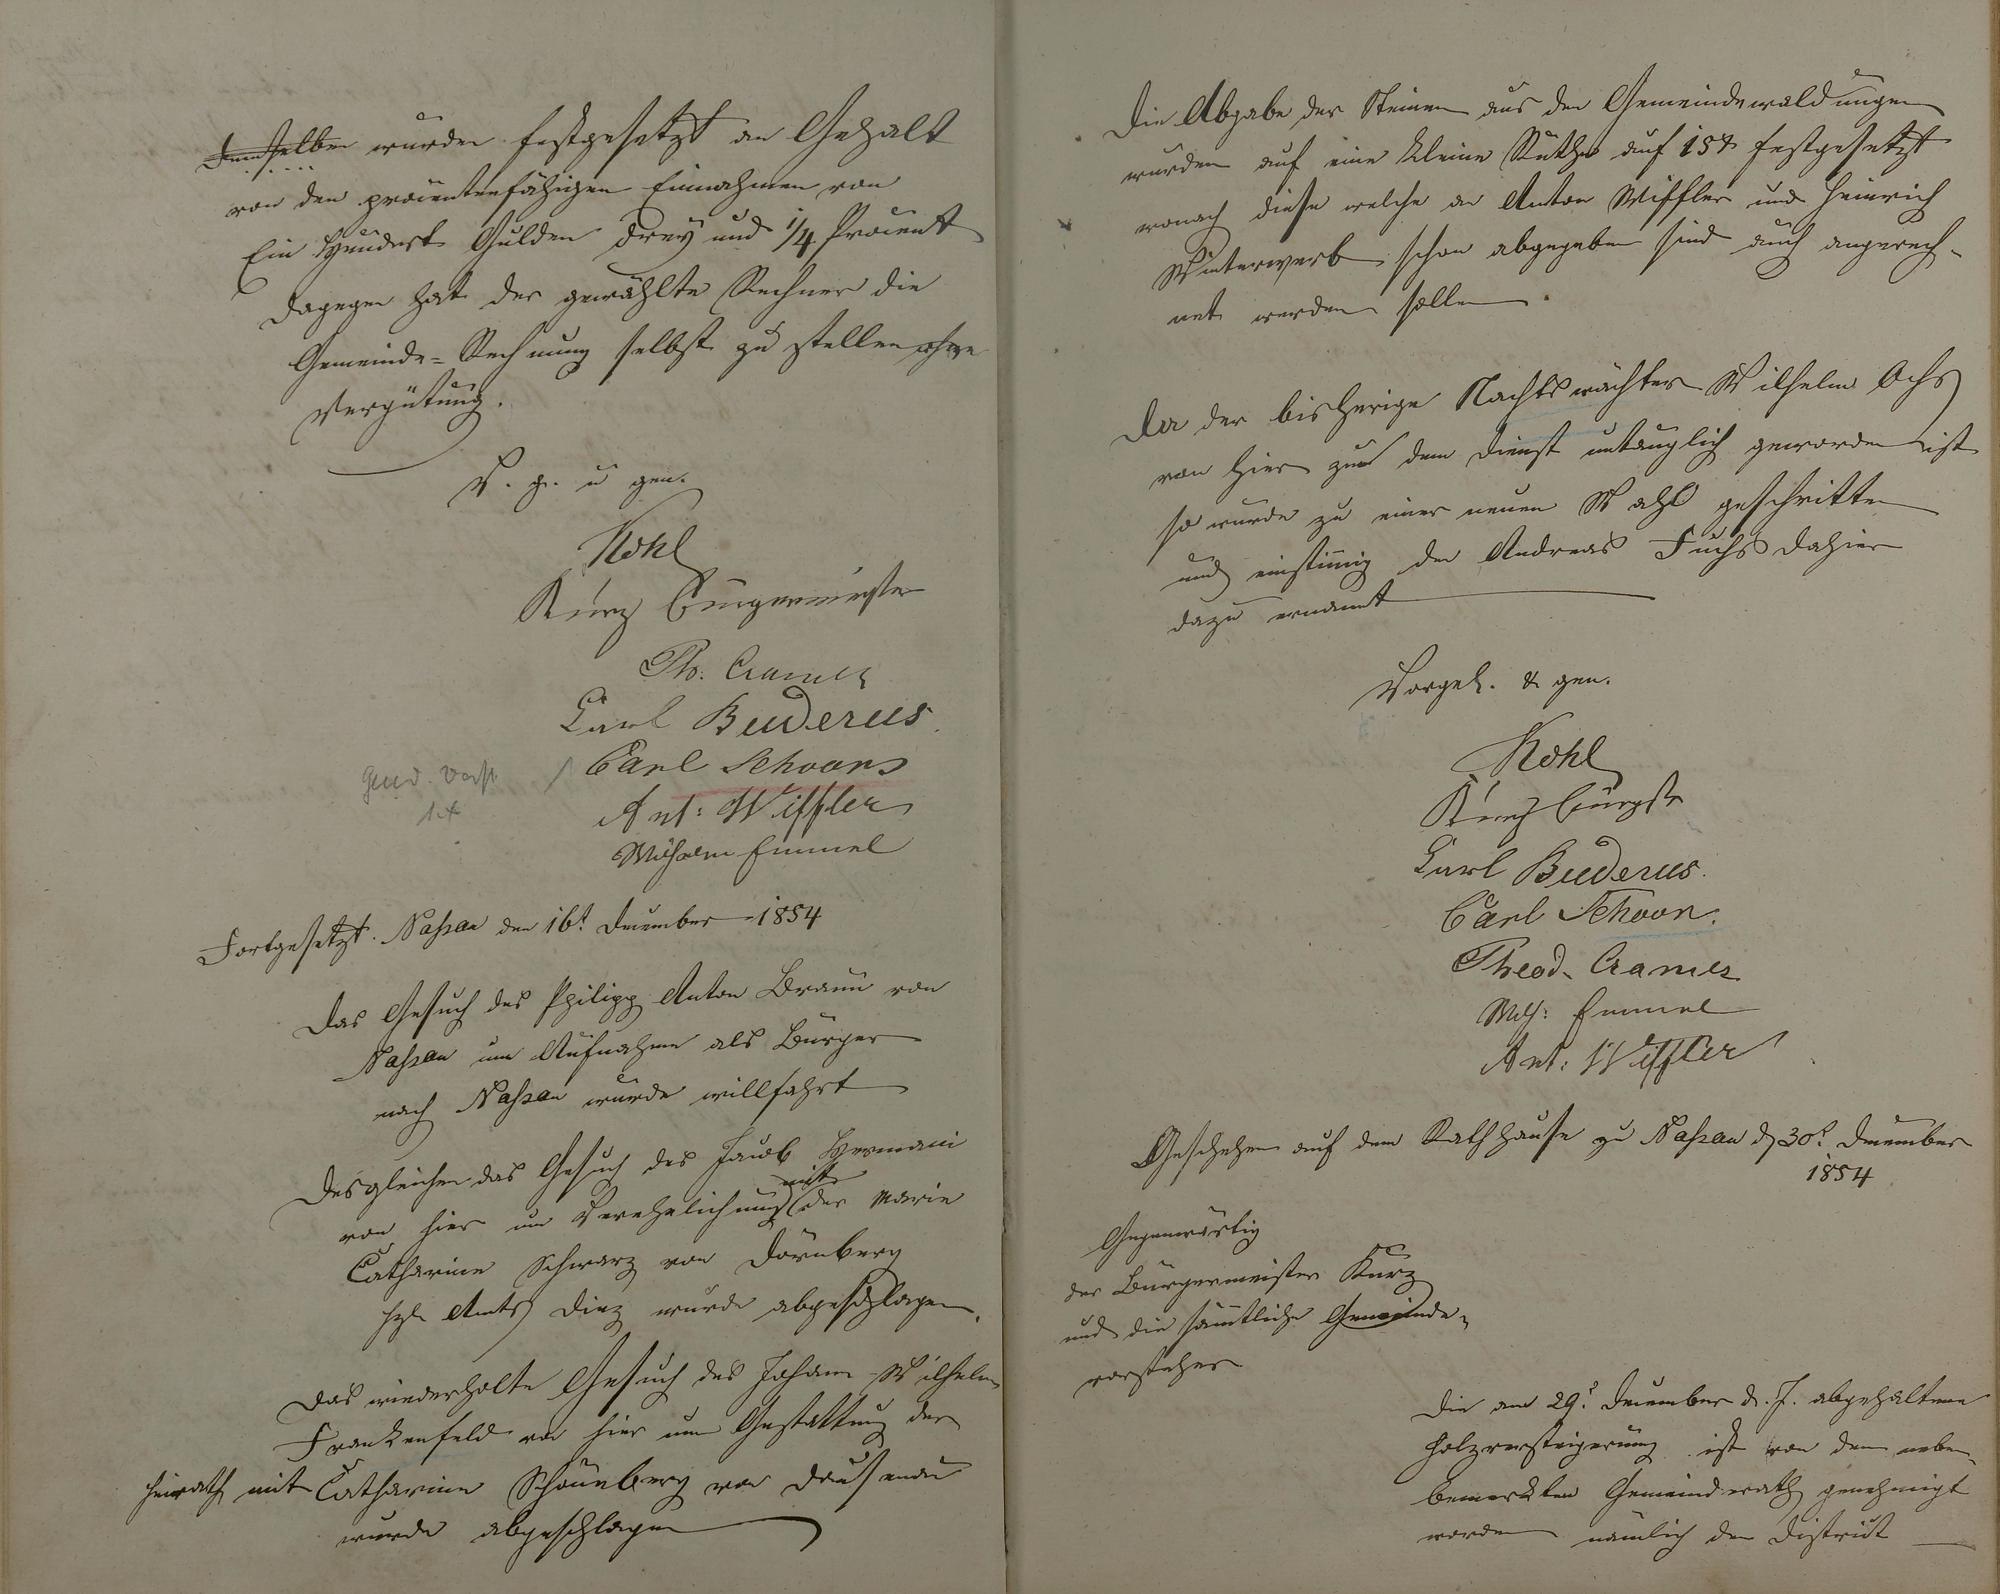 demselben wurden festgesetzt an Gehalt
von den procentenfähigen Einnahmen von
Ein Hundert Gulden drey und 1/4 Procent
dagegen hat der gewählte Rechner die
Gemeinde-Rechnung selbst zu stellen ohne
Vergütung.
V. g. u gen.
Kohl
Kurz Bürgermeister
Th. Cramer
Carl Buderus
Carl Schoon
Ant: Wiffler
Wilhelm Emmel
Fortgesetzt. Naßau den 16t December 1854
Das Gesuch des Philipp Anton Braun von
Naßau um Aufnahme als Bürger
nach Naßau wurde willfahrt
Desgleichen das Gesuch des Jacob Hermani
von hier um Verehelichung mit der Marie
Catharine Schwarz von Dörnberg
Hzl. Amts Diez wurde abgeschlagen.
Das wiederholte Gesuch des Johann Wilhelm
Frankenfeld von hier um Gestattung der
Heirath mit Catharine Schönberg von Dausenau
wurde abgeschlagen
Die Abgabe der Steinen aus den Gemeindewaldungen
wurden auf eine kleine Ruthe auf 15 festgesetzt
wonach diese welche an Anton Wiffler und Heinrich
Winterwerb schon abgegeben sind auch angerech-
net werden sollen.
Da der bisherige Nachtswächter Wilhelm Ochs
von hier zu dem Dienst untauglich geworden ist
so wurde zu einer neuen Wahl geschritten
und einstimmig der Andreas Fuchs dahier
dazu ernannt
Vorgel. & gen.
Kohl
Kurz Bürgstr
Carl Buderus.
Carl Schoon.
Theod. Cramer
Wilh: Emmel
Ant: Wiffler
Geschehen auf dem Rathhause zu Naßau d 30t December
1854
Gegenwärtig
der Bürgermeister Kurz
und die sämtliche Gemeinde-
vorsteher
Die am 29t December d. J. abgehaltene
Holzversteigerung ist von dem neben-
bemerkten Gemeinderath genehmigt
worden nämlich der District